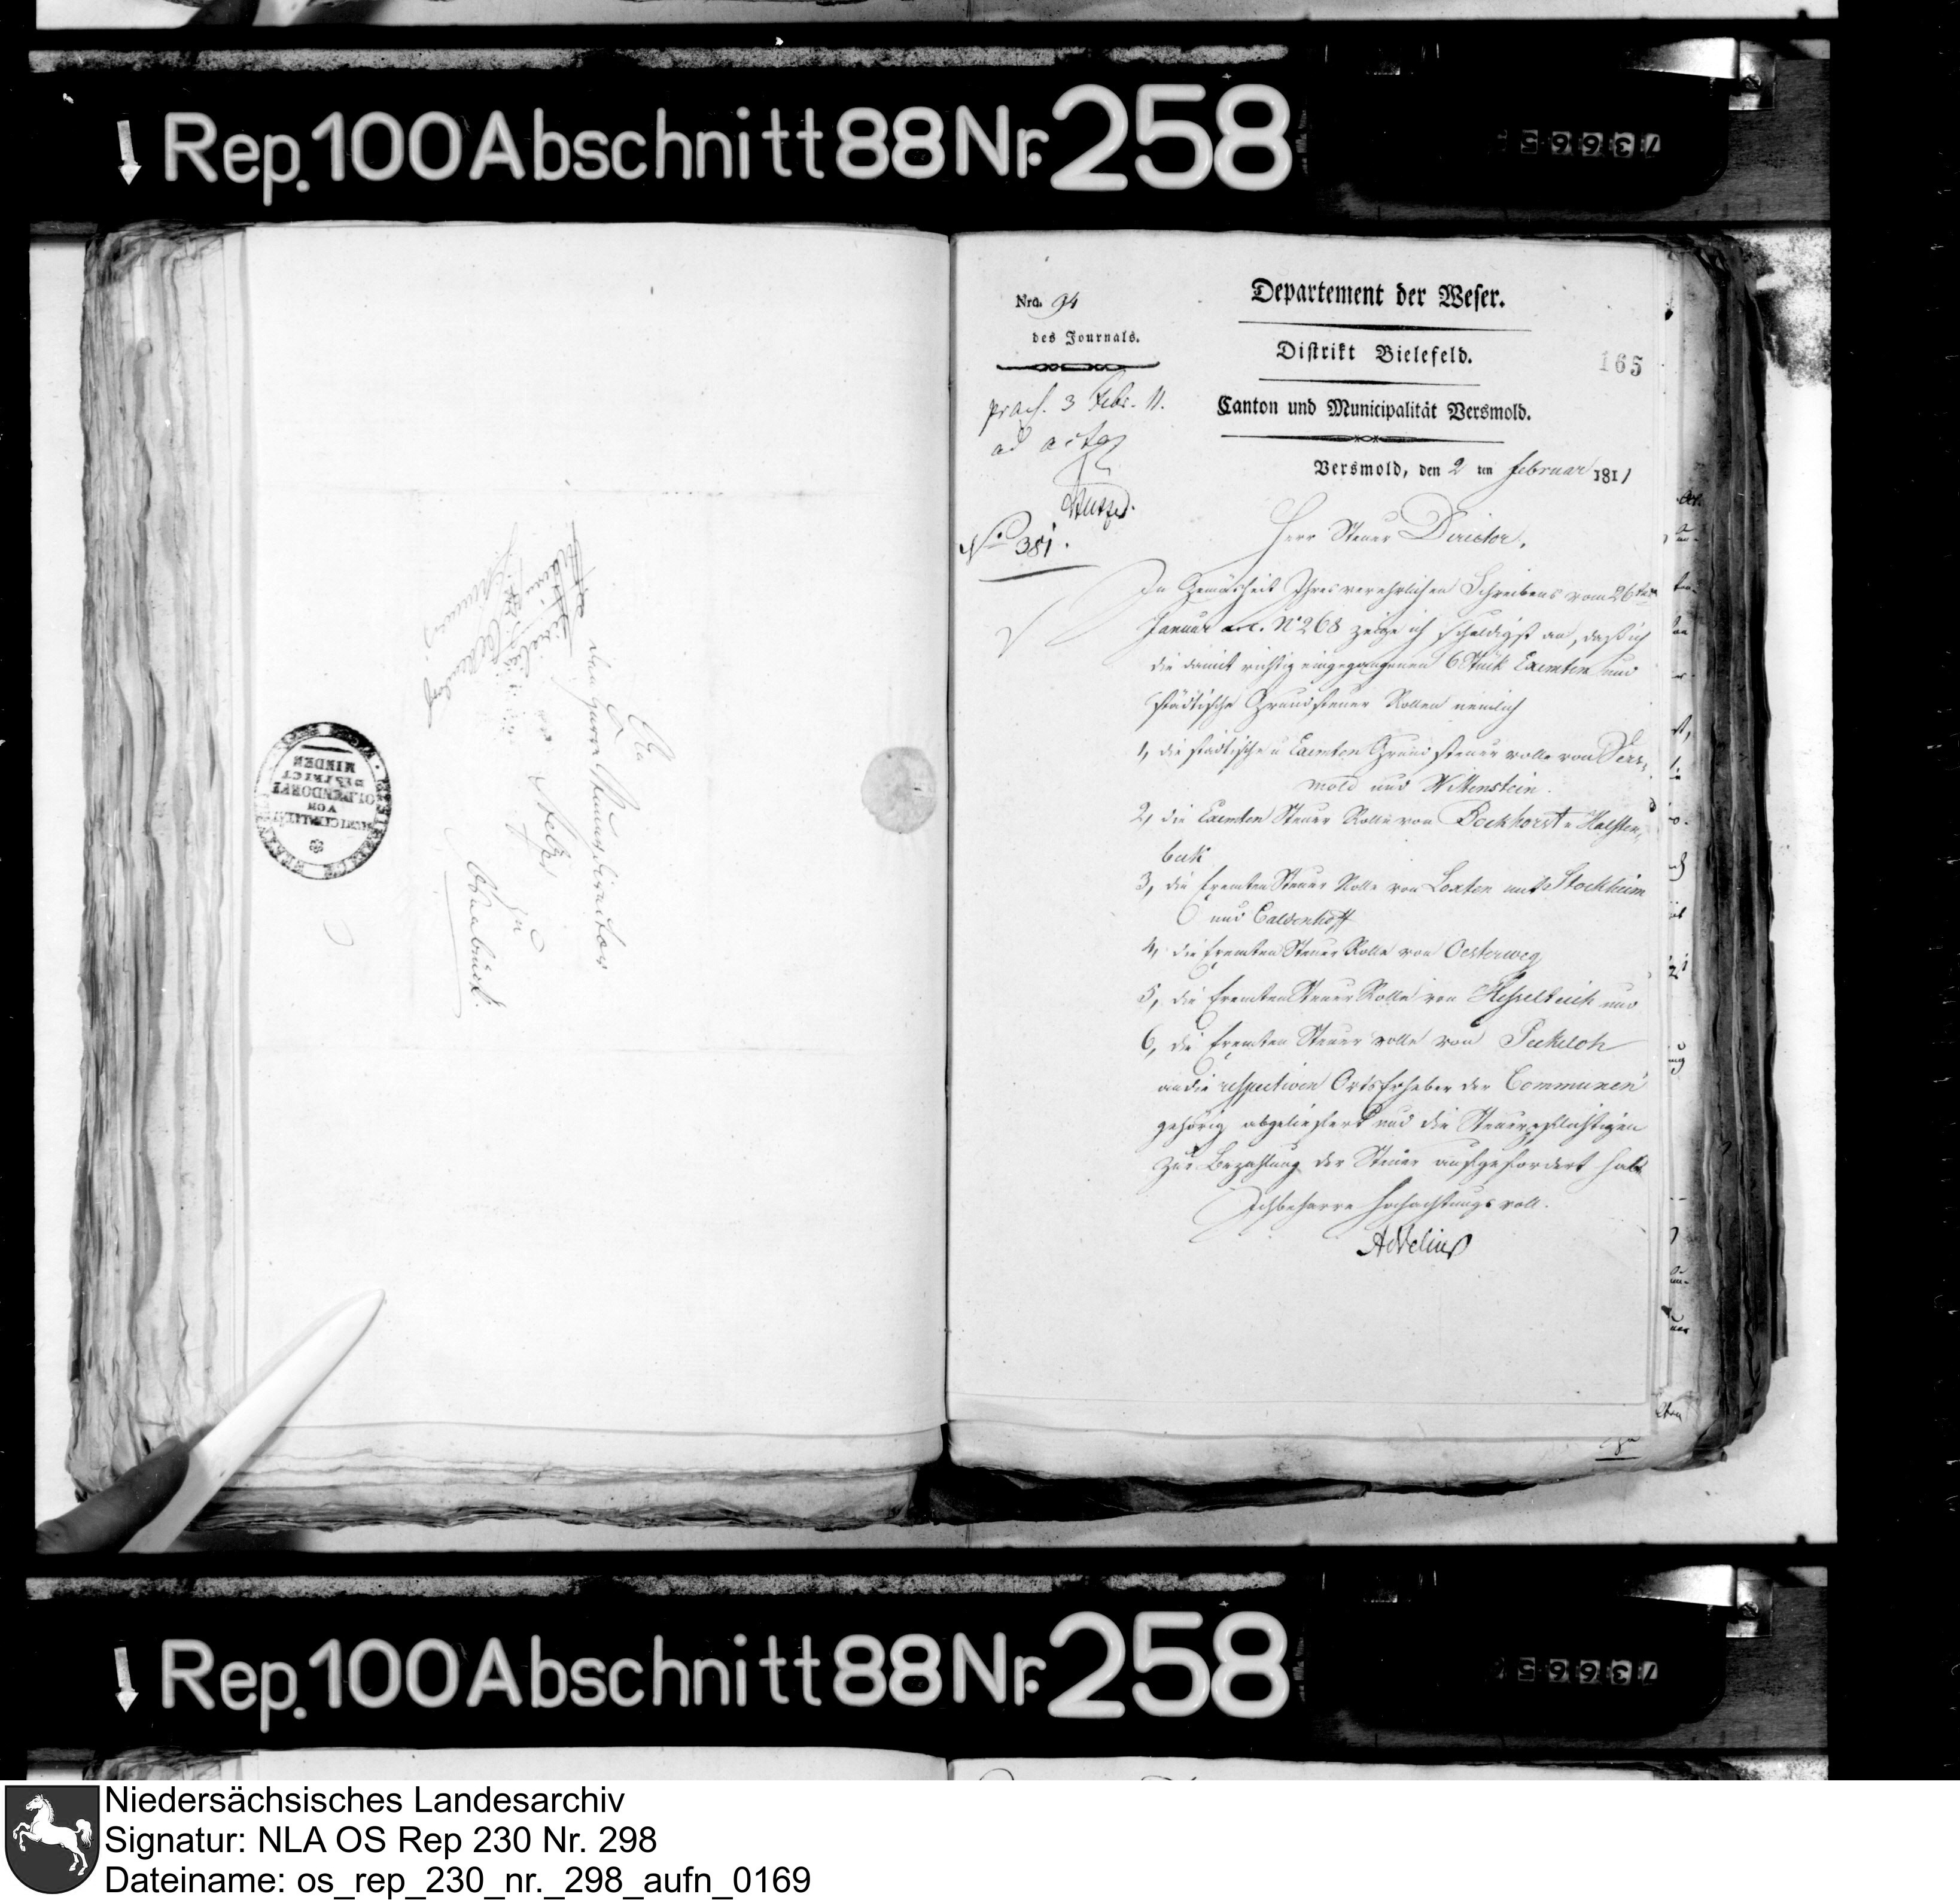 Rep. 100 Abschnitt 88 Nr. 258
An
den Herrn Steuerdirector
Stelzer
in
Osnabrück.
MUNICIPALITÄT
VON
OLDENDORF
DISTRICT
MINDEN
Nro. 94
des Journals.
praes. 3 Febr. 11.
ad acta
Stelzer.
No 381.
Departement der Weser.
Distrikt Bielefeld.
165
Canton und Municipalität Versmold.
Versmold, den 2 ten Februar 1811
Herr Steuer Director,
In Gemäsheit Ihres verehrlichen Schreibens vom 26ten
Januar No 268 zeige ich schuldigst an, daß ich
die damit richtig eingegangenen 6 Stück Exemten und
städtische Grundsteuer Rollen nemlich
1, die städtische u Exemten Grundsteuerrolle von Vers,
mold und Wittenstein.
2, die Exemten Steuer Rolle von Bockhorst u Halsten,
beck
3, die Exemten Steuer Rolle von Loxten mit Stockheim
und Caldenhoff
4, die Exemten Steuer Rolle von Oesterweg
5, die Exemten Steuer Rolle von Hesselteich und
6, die Exemten Steuer rolle von Peckeloh
an die respectiven Orts Erheber der Communen
gehörig abgeliefert und die Steuerpflichtigen
zur Bezahlung der Steuer aufgefordert habe
Ich beharre hochachtungsvoll.
Rep. 100 Abschnitt 88 Nr. 258
Niedersächsisches Landesarchiv
Signatur: NLA OS Rep 230 Nr. 298
Dateiname: os_rep_230_nr._298_aufn_0169